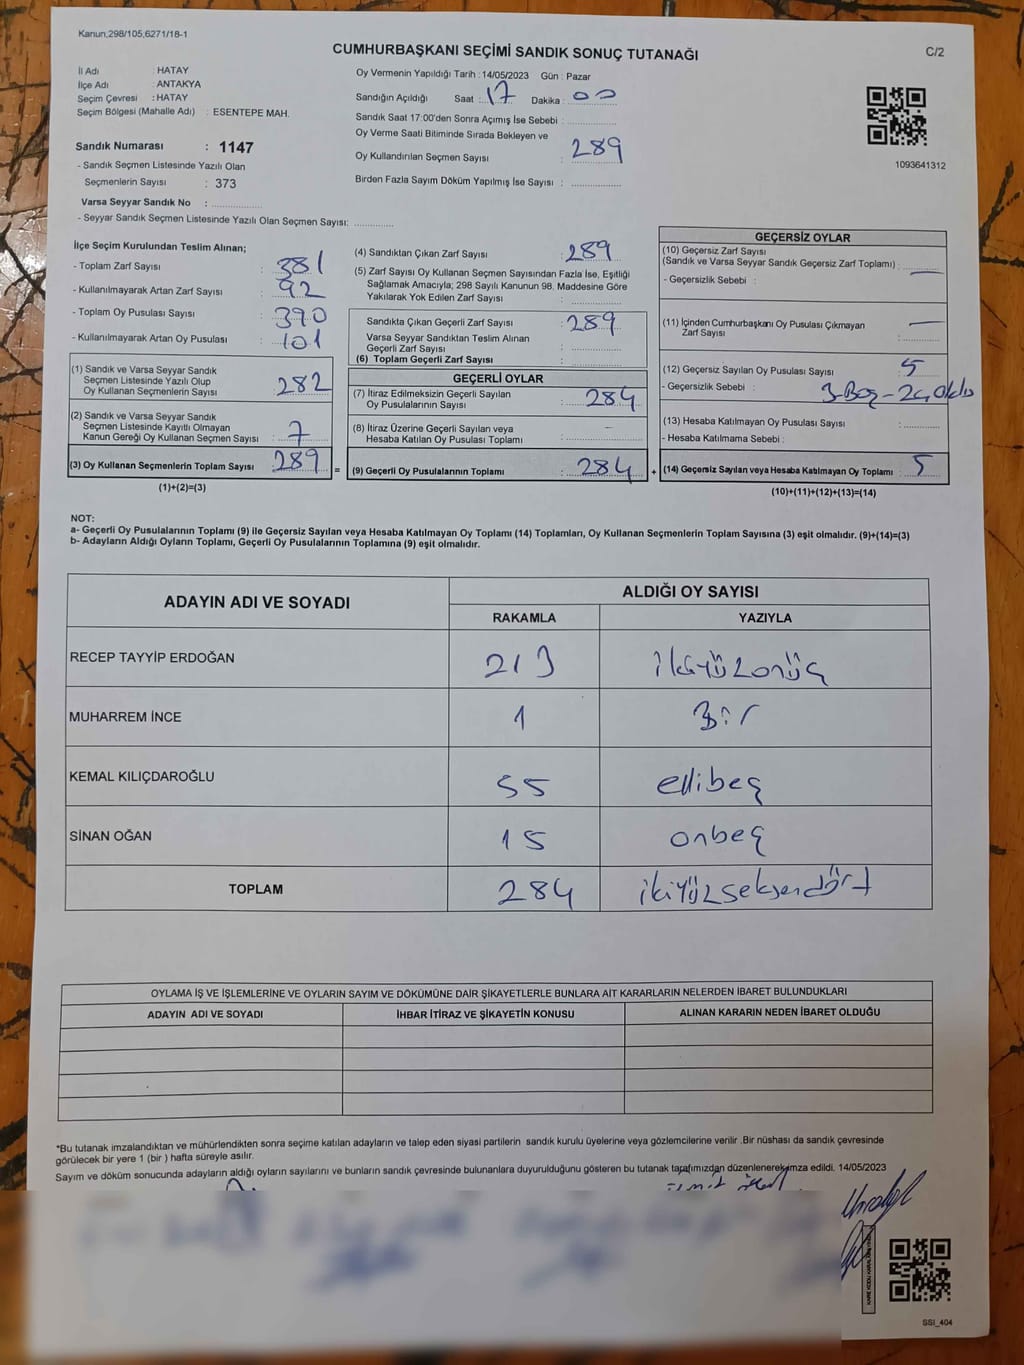 Kanun,298/105,6271/18-1
CUMHURBAŞKANI SEÇİMİ SANDIK SONUÇ TUTANAĞI
C/2
İl Adı : HATAY
İlçe Adı : ANTAKYA
Seçim Çevresi : HATAY
Seçim Bölgesi (Mahalle Adı) : ESENTEPE MAH.
Sandık Numarası : 1147
- Sandık Seçmen Listesinde Yazılı Olan
Seçmenlerin Sayısı : 373
Varsa Seyyar Sandık No :
- Seyyar Sandık Seçmen Listesinde Yazılı Olan Seçmen Sayısı:
Oy Vermenin Yapıldığı Tarih : 14/05/2023 Gün : Pazar
Sandığın Açıldığı Saat : 17 Dakika : 00
Sandık Saat 17:00'den Sonra Açımış İse Sebebi :
Oy Verme Saati Bitiminde Sırada Bekleyen ve
Oy Kullandırılan Seçmen Sayısı : 289
Birden Fazla Sayım Döküm Yapılmış İse Sayısı :
1093641312
İlçe Seçim Kurulundan Teslim Alınan;
- Toplam Zarf Sayısı : 381
- Kullanılmayarak Artan Zarf Sayısı : 92
- Toplam Oy Pusulası Sayısı : 390
- Kullanılmayarak Artan Oy Pusulası : 101
(1) Sandık ve Varsa Seyyar Sandık
Seçmen Listesinde Yazılı Olup
Oy Kullanan Seçmenlerin Sayısı : 282
(2) Sandık ve Varsa Seyyar Sandık
Seçmen Listesinde Kayıtlı Olmayan
Kanun Gereği Oy Kullanan Seçmen Sayısı : 7
(3) Oy Kullanan Seçmenlerin Toplam Sayısı : 289 =
(1)+(2)=(3)
(4) Sandıktan Çıkan Zarf Sayısı : 289
(5) Zarf Sayısı Oy Kullanan Seçmen Sayısından Fazla İse, Eşitliği
Sağlamak Amacıyla; 298 Sayılı Kanunun 98. Maddesine Göre
Yakılarak Yok Edilen Zarf Sayısı :
Sandıkta Çıkan Geçerli Zarf Sayısı : 289
Varsa Seyyar Sandıktan Teslim Alınan
Geçerli Zarf Sayısı :
(6) Toplam Geçerli Zarf Sayısı :
GEÇERLİ OYLAR
(7) İtiraz Edilmeksizin Geçerli Sayılan
Oy Pusulalarının Sayısı : 284
(8) İtiraz Üzerine Geçerli Sayılan veya
Hesaba Katılan Oy Pusulası Toplamı : –
(9) Geçerli Oy Pusulalarının Toplamı : 284 +
GEÇERSİZ OYLAR
(10) Geçersiz Zarf Sayısı
(Sandık ve Varsa Seyyar Sandık Geçersiz Zarf Toplamı) : —
- Geçersizlik Sebebi :
(11) İçinden Cumhurbaşkanı Oy Pusulası Çıkmayan
Zarf Sayısı : —
(12) Geçersiz Sayılan Oy Pusulası Sayısı : 5
- Geçersizlik Sebebi : 3-Boş - 2
(13) Hesaba Katılmayan Oy Pusulası Sayısı :
- Hesaba Katılmama Sebebi :
(14) Geçersiz Sayılan veya Hesaba Katılmayan Oy Toplamı : 5
(10)+(11)+(12)+(13)=(14)
NOT:
a- Geçerli Oy Pusulalarının Toplamı (9) ile Geçersiz Sayılan veya Hesaba Katılmayan Oy Toplamı (14) Toplamları, Oy Kullanan Seçmenlerin Toplam Sayısına (3) eşit olmalıdır. (9)+(14)=(3)
b- Adayların Aldığı Oyların Toplamı, Geçerli Oy Pusulalarının Toplamına (9) eşit olmalıdır.
ADAYIN ADI VE SOYADI ALDIĞI OY SAYISI
RAKAMLA YAZIYLA
RECEP TAYYİP ERDOĞAN 213 ikiyüzonüç
MUHARREM İNCE 1 Bir
KEMAL KILIÇDAROĞLU 55 ellibeş
SİNAN OĞAN 15 onbeş
TOPLAM 284 ikiyüzseksendört
OYLAMA İŞ VE İŞLEMLERİNE VE OYLARIN SAYIM VE DÖKÜMÜNE DAİR ŞİKAYETLERLE BUNLARA AİT KARARLARIN NELERDEN İBARET BULUNDUKLARI
ADAYIN ADI VE SOYADI İHBAR İTİRAZ VE ŞİKAYETİN KONUSU ALINAN KARARIN NEDEN İBARET OLDUĞU
*Bu tutanak imzalandıktan ve mühürlendikten sonra seçime katılan adayların ve talep eden siyasi partilerin sandık kurulu üyelerine veya gözlemcilerine verilir .Bir nüshası da sandık çevresinde
görülecek bir yere 1 (bir ) hafta süreyle asılır.
Sayım ve döküm sonucunda adayların aldığı oyların sayılarını ve bunların sandık çevresinde bulunanlara duyurulduğunu gösteren bu tutanak tarafımızdan düzenlenerek imza edildi. 14/05/2023
SSI_404